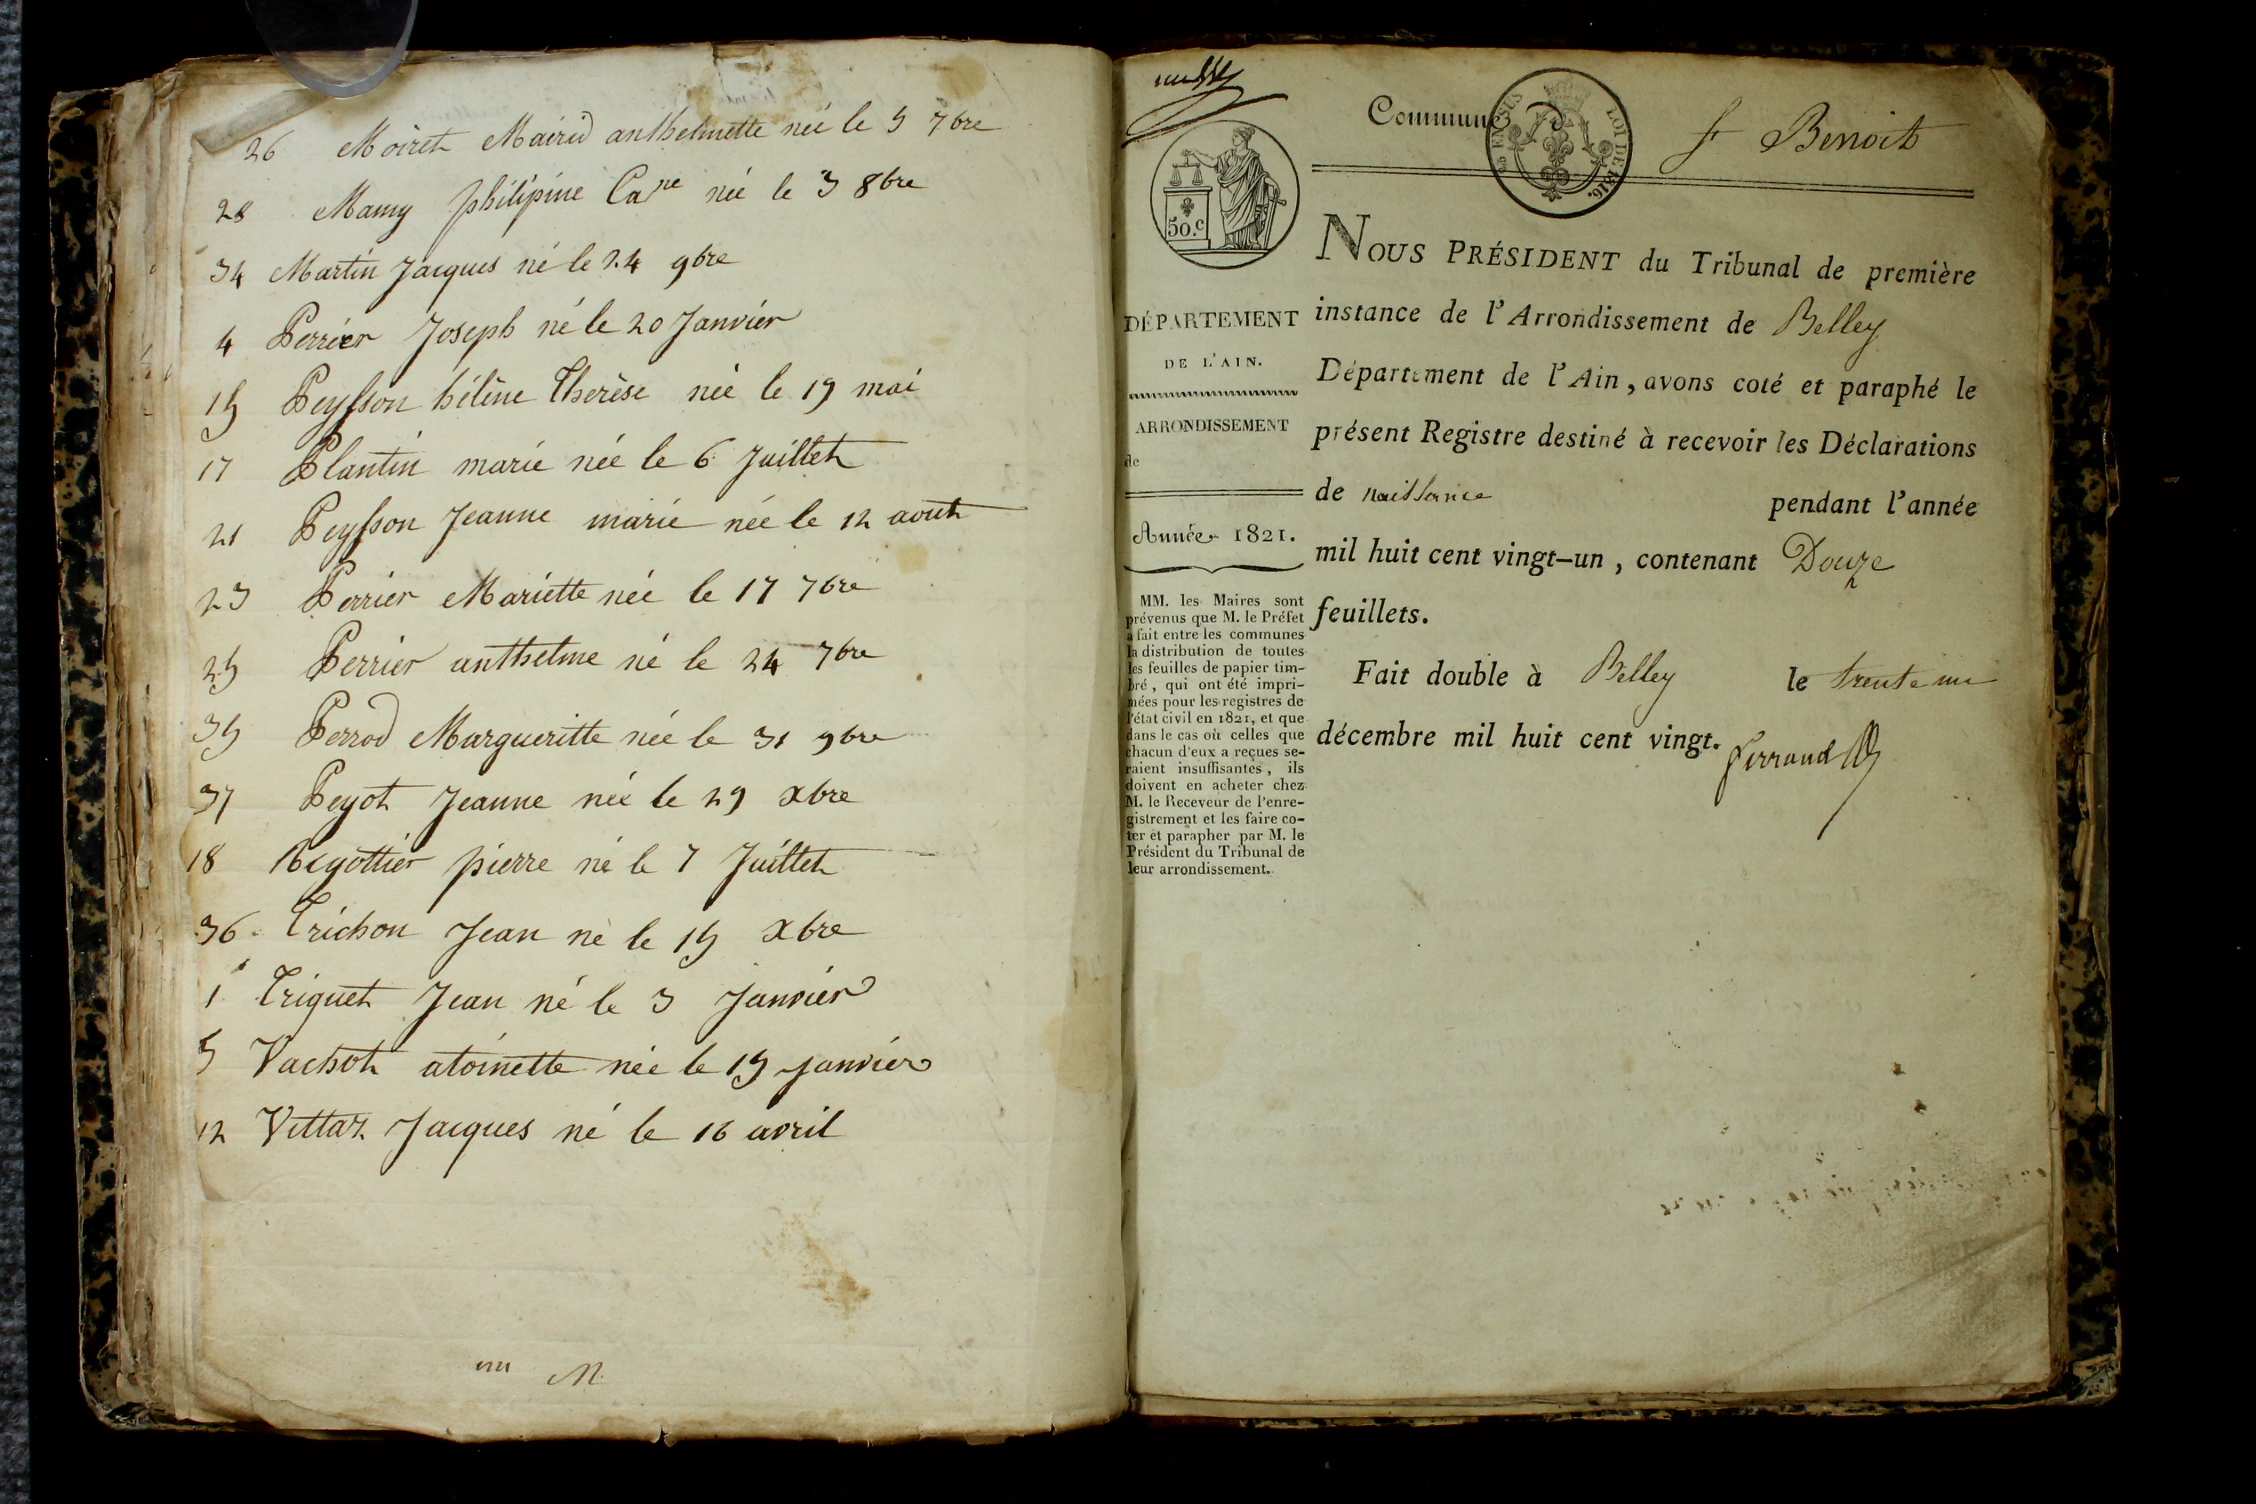 26 Moiret Mairie anthelmette née le 5 7bre
28 Mamy philipine Cane née le 3 8bre
34 Martin Jacques né le 24 9bre
4 Perrier Joseph né le 20 Janvier
15 Peysson hélène Therèse née le 19 mai
17 Plantin marie née le 6 Juillet
21 Peysson Jeanne marie née le 12 aout
23 Perrier Mariette née le 17 7bre
25 Perrier anthelme né le 24 7bre
35 Perrod Margueritte née le 31 9bre
37 Peyot Jeanne née le 29 xbre
18 Reyottier pierre né le 7 Juillet
36 Trichon Jean né le 15 xbre
1 Triquet Jean né le 3 Janvier
5 Vachot atoinette née le 15 janvier
12 Vettaz Jacques né le 16 avril
Commune
St Benoit
EN SUS
LOI DE 1816.
50.c
DÉPARTEMENT
DE L'AIN.
ARRONDISSEMENT
de
Année 1821.
MM. les Maires sont
prévenus que M. le Préfet
a fait entre les communes
la distribution de toutes
les feuilles de papier tim-
bré, qui ont été impri-
mées pour les registres de
l'état civil en 1821, et que
dans le cas où celles que
chacun d'eux a reçues se-
raient insuffisantes, ils
doivent en acheter chez
M. le Receveur de l'enre-
gistrement et les faire co-
ter et parapher par M. le
Président du Tribunal de
leur arrondissement.
NOUS PRÉSIDENT du Tribunal de première
instance de l'Arrondissement de Belley
Département de l'Ain, avons coté et paraphé le
présent Registre destiné à recevoir les Déclarations
de naissance pendant l'année
mil huit cent vingt-un, contenant Douze
feuillets.
Fait double à Belley le trente un
décembre mil huit cent vingt.
Ferrand